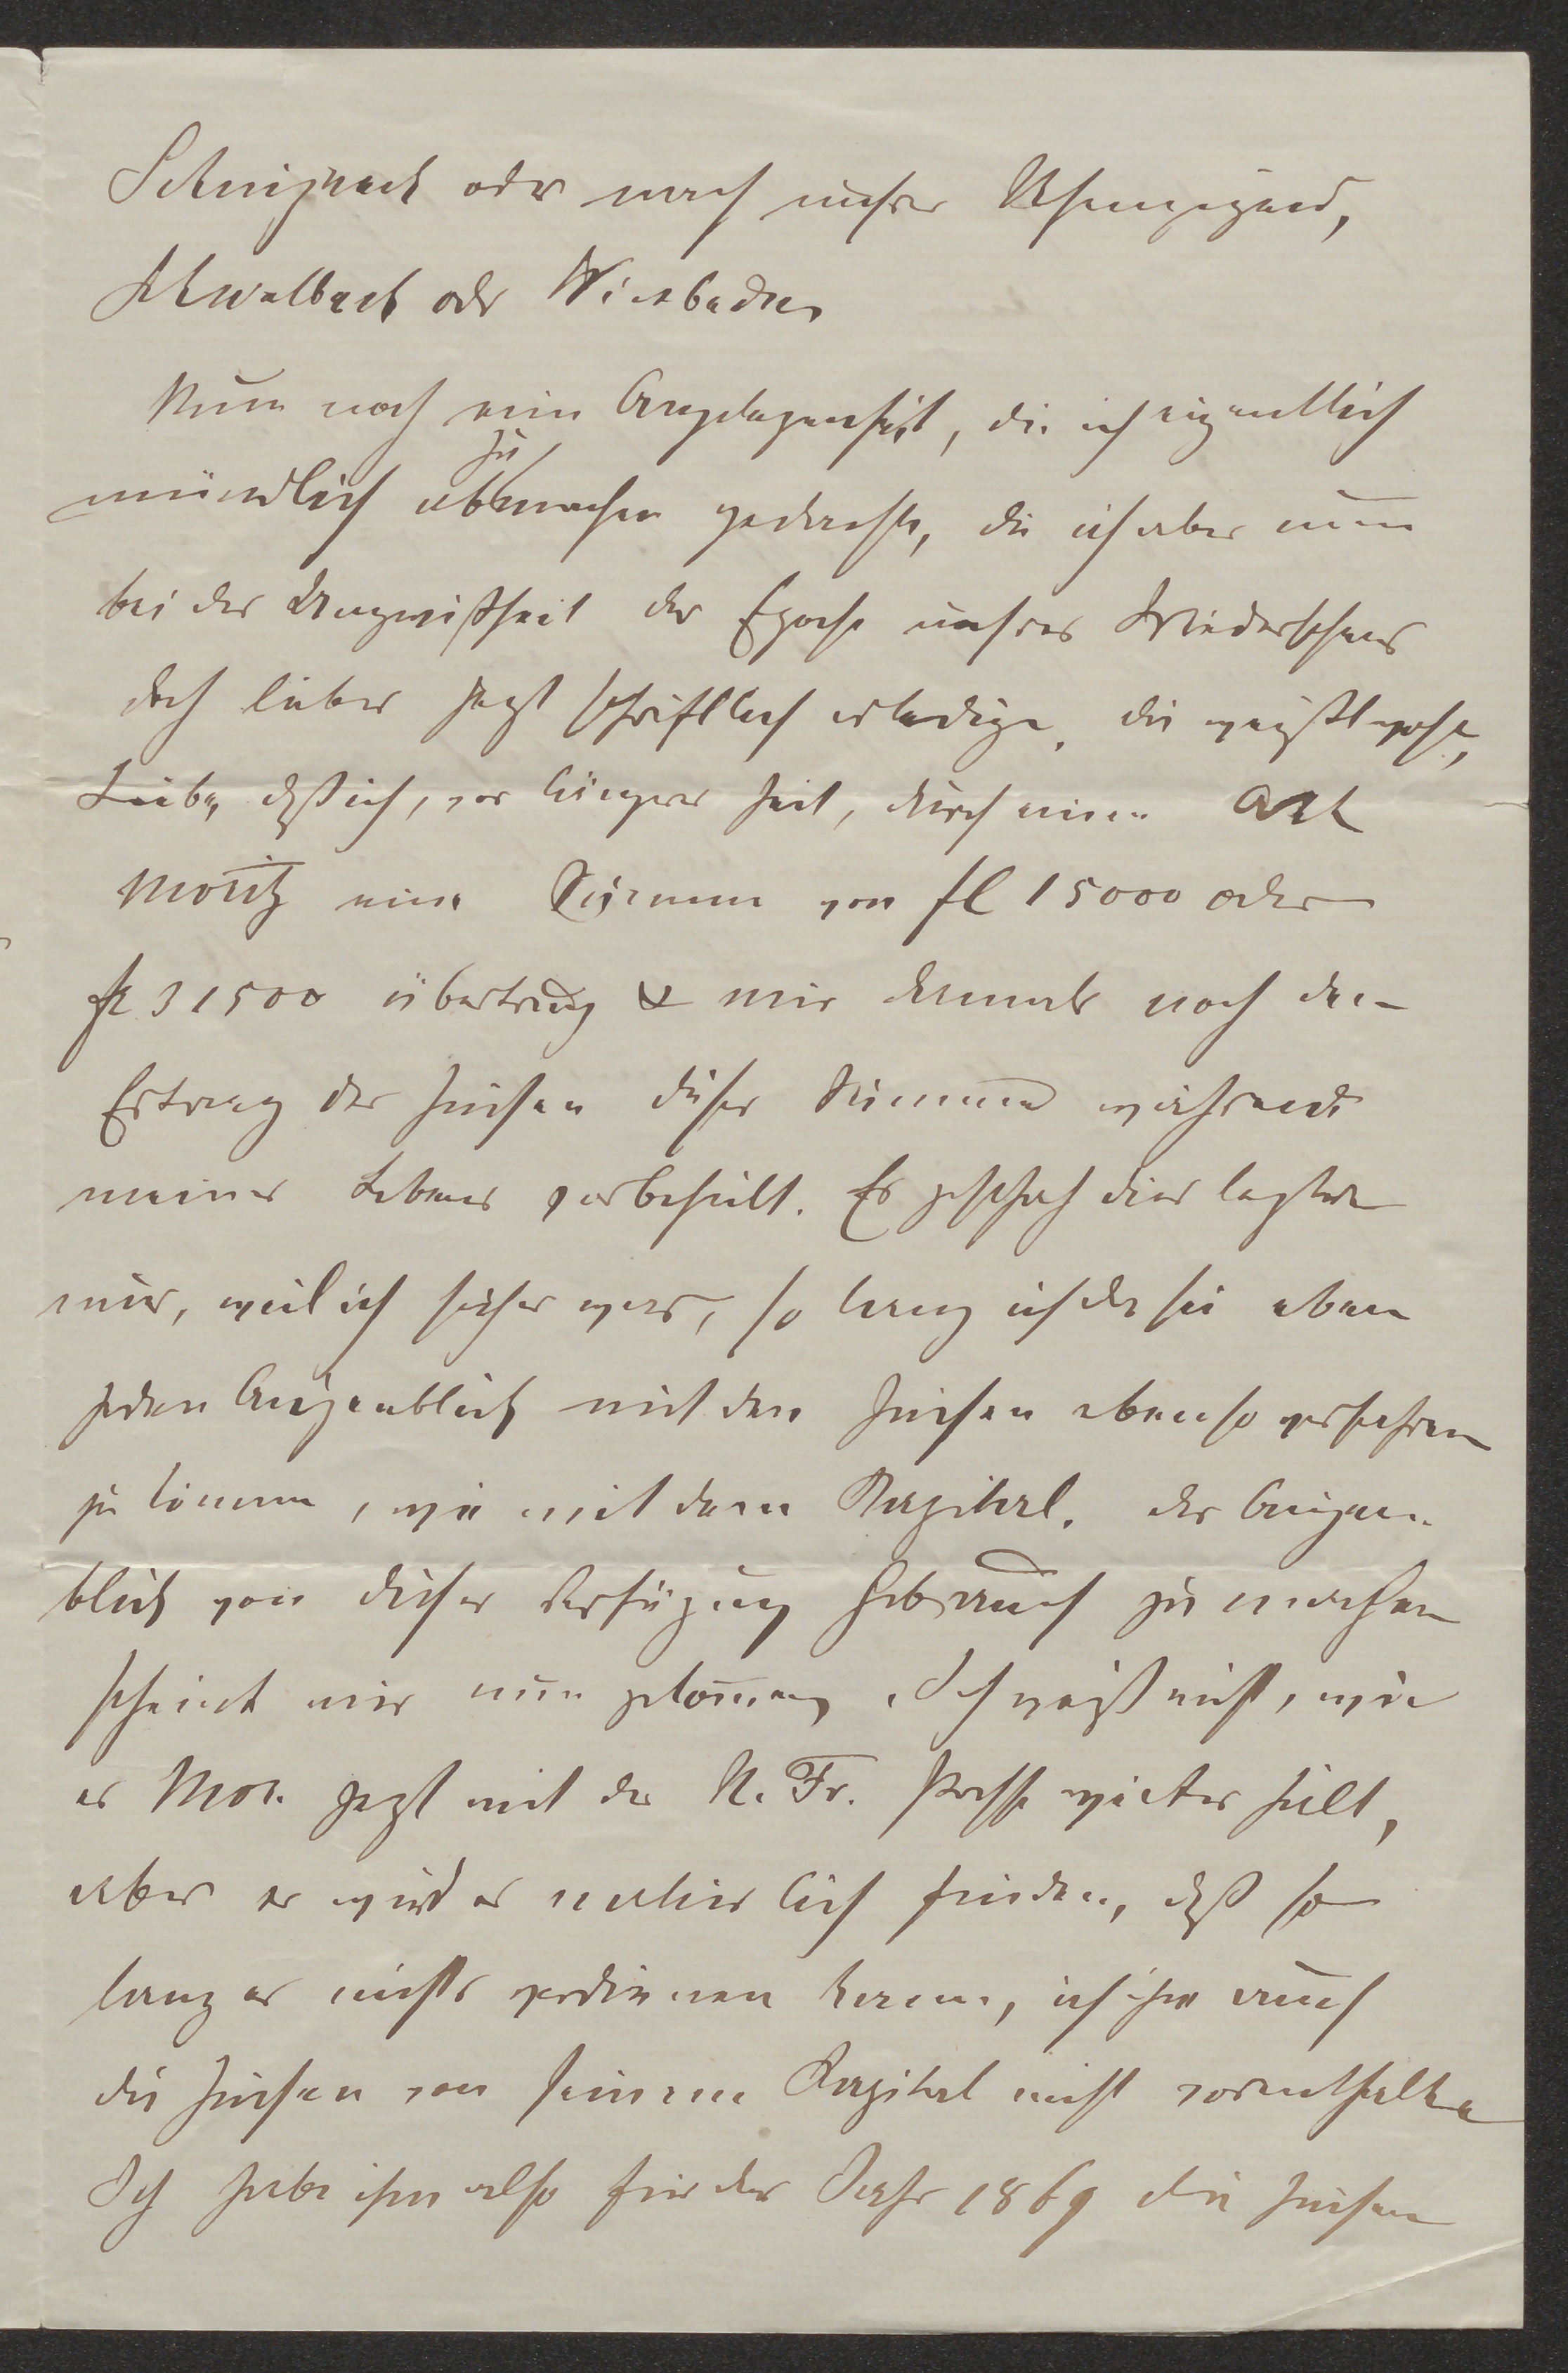 Schuiznach oder nach unsrer Rheingegend,
Schwalbach oder Wiesbaden
Nun noch eine Angelegenheit, die ich eigentlich
mündlich abzumachen gedachte, die ich aber nun
bei der Ungewißheit der Epoche unsres Wiedersehens
doch lieber jezt schriftlich erledige. Du weißt wohl,
Liebe, daß ich, vor längerer Zeit, durch einen Act
Moritz eine Summe von fl 15000 oder
fr 31500 übertrug & mir damals noch den
Ertrag der Zinsen dieser Summe während
meines Lebens vorbehielt. Es geschah dies leztere
nur, weil ich sicher war, so lang ich da sei eben
jeden Augenblick mit den Zinsen ebenso verfahren
zu können, wie mit dem Kapital. Der Augen
blick von dieser Verfügung Gebrauch zu machen
scheint mir nun gekommen. Ich weiß nicht, wie
es Mor. jezt mit der N. Fr. Presse weiter hält,
aber er wird es natürlich finden, daß so
lang er nichts verdienen kann, ich ihm auch
die Zinsen von seinem Kapital nicht vorenthalte
Ich habe ihm also für das Jahr 1869 die Zinsen